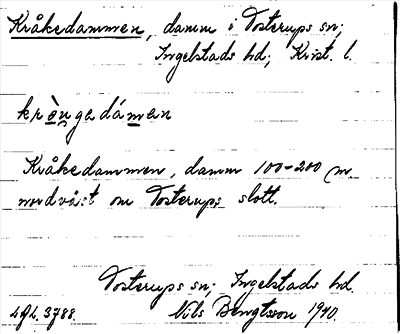 Kråkedammen, damm i Tosterups sn;
Ingelstads hd; Krist. l.
krȯu̯gedámen
Kråkedammen, damm 100-200 m
nordväst om Tosterups slott.
Tosterups sn; Ingelstads hd.
Nils Bengtsson 1910.